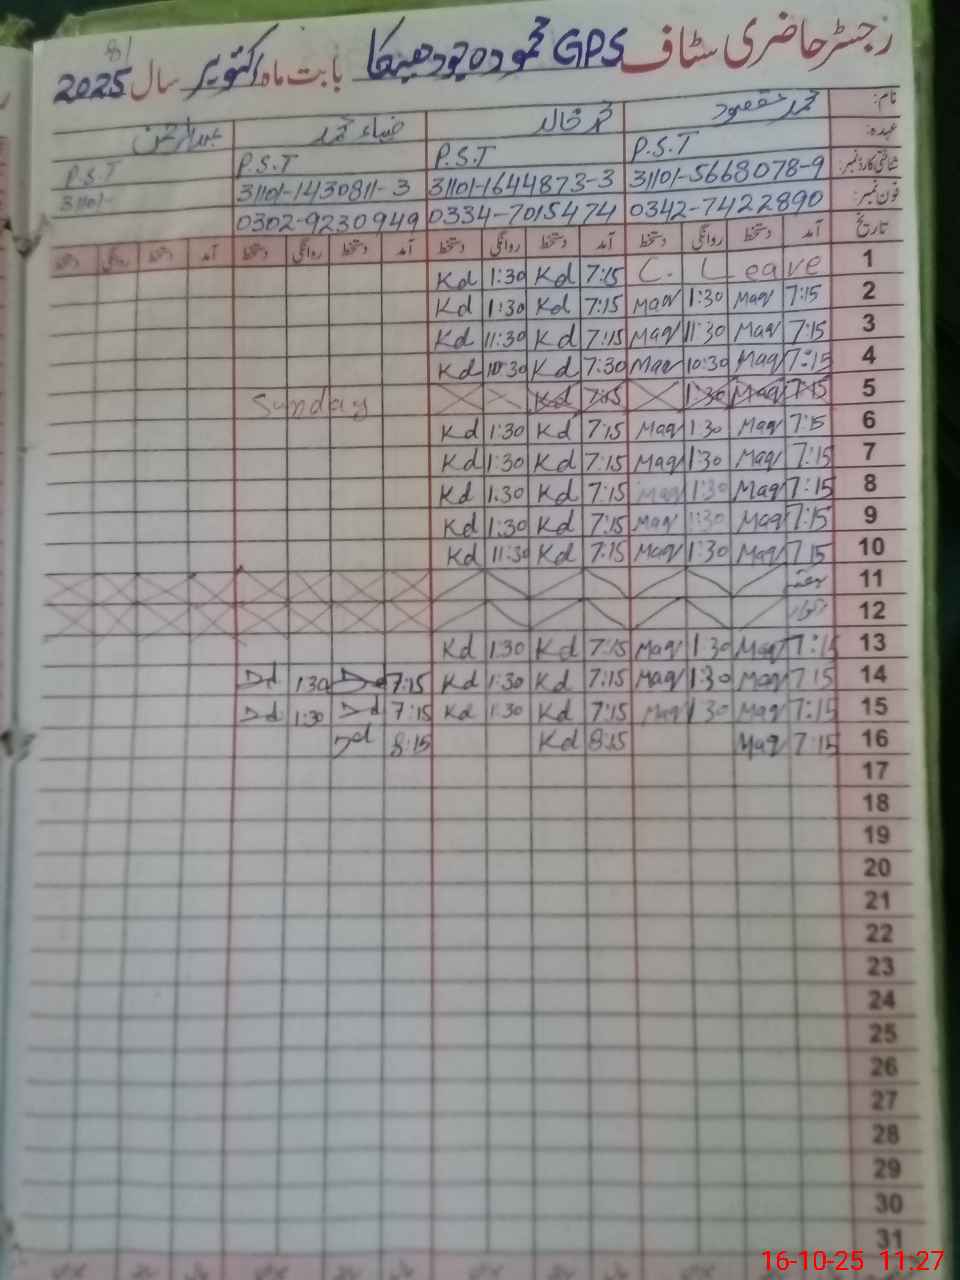 رجسٹر حاضری سٹاف GPS محمودہ جودھیکا بابت ماہ اکتوبر سال 2025
81
نام: محمد مقصود محمد خالد ضیاء محمد
عہدہ: P.S.T P.S.T P.S.T P.S.T
شناختی کارڈ نمبر: 31101-5668078-9 31101-1644873-3 31101-1430811-3 31101-
فون نمبر: 0342-7422890 0334-7015474 0302-9230949
تاریخ آمد دستخط روانگی دستخط آمد دستخط روانگی دستخط آمد دستخط روانگی دستخط آمد دستخط روانگی دستخط
1 C. Leave 7:15 Kd 1:30 Kd
2 7:15 Maq 1:30 Maq 7:15 Kd 1:30 Kd
3 7:15 Maq 11:30 Maq 7:15 Kd 11:30 Kd
4 7:15 Maq 10:30 Maq 7:30 Kd 10:30 Kd
5 7:15 Maq 1:30 7:15 Kd Sunday
6 7:15 Maq 1:30 Maq 7:15 Kd 1:30 Kd
7 7:15 Maq 1:30 Maq 7:15 Kd 1:30 Kd
8 7:15 Maq 1:30 Maq 7:15 Kd 1:30 Kd
9 7:15 Maq 1:30 Maq 7:15 Kd 1:30 Kd
10 7:15 Maq 1:30 Maq 7:15 Kd 11:30 Kd
11 ہفتہ
12 اتوار
13 7:15 Maq 1:30 Maq 7:15 Kd 1:30 Kd
14 7:15 Maq 1:30 Maq 7:15 Kd 1:30 Kd 7:15 Dd 1:30 Dd
15 7:15 Maq 1:30 Maq 7:15 Kd 1:30 Kd 7:15 Dd 1:30 Dd
16 7:15 Maq 8:15 Kd 8:15 Dd
17
18
19
20
21
22
23
24
25
26
27
28
29
30
31
16-10-25 11:27